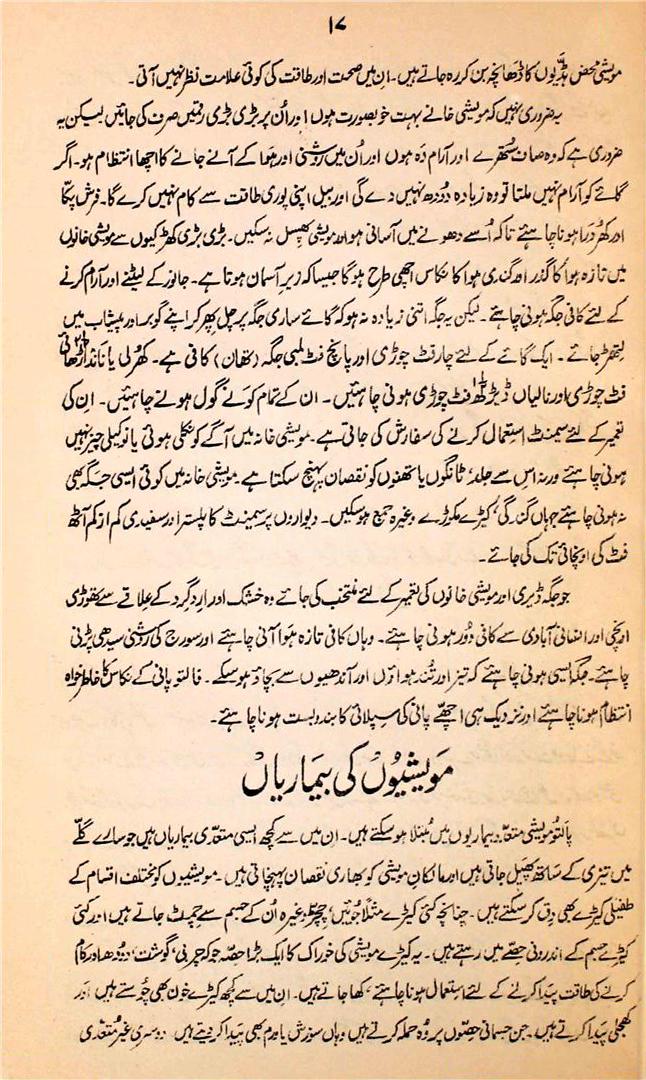 ۱۷
مویشی محض ہڈیوں کا ڈھانچہ بن کر رہ جاتے ہیں۔ ان میں صحت اور طاقت کی کوئی علامت نظر نہیں آتی۔
یہ ضروری نہیں کہ مویشی خانے بہت خوبصورت ہوں اور اُن پر بڑی بڑی رقمیں صرف کی جائیں لیکن یہ
ضروری ہے کہ وہ صاف ستھرے اور آرام دہ ہوں اور اُن میں روشنی اور ہوا کے آنے جانے کا اچھا انتظام ہو۔ اگر
گائے کو آرام نہیں ملتا تو وہ زیادہ دودھ نہیں دے گی اور بیل اپنی پوری طاقت سے کام نہیں کرے گا۔ فرش پکّا
اور کھُردرا ہونا چاہئے تاکہ اُسے دھونے میں آسانی ہو اور مویشی پھسل نہ سکیں۔ بڑی بڑی کھڑکیوں سے مویشی خانوں
میں تازہ ہوا کا گذر اور گندی ہوا کا نکاس اچھی طرح ہوگا جیسا کہ زیرِ آسمان ہوتا ہے۔ جانور کے لیٹنے اور آرام کرنے
کے لئے کافی جگہ ہونی چاہئے۔ لیکن یہ جگہ اتنی زیادہ نہ ہو کہ گائے ساری جگہ پر چل پھر کر اپنے گوبر اور پیشاب میں
لتھڑ جائے۔ ایک گائے کے لئے چار فٹ چوڑی اور پانچ فٹ لمبی جگہ (تھان) کافی ہے۔ کھُرلی یا ناند اڑھائی
فٹ چوڑی اور نالیاں ڈیڑھ فٹ چوڑی ہونی چاہئیں۔ ان کے تمام کونے گول ہونے چاہئیں۔ ان کی
تعمیر کے لئے سیمنٹ استعمال کرنے کی سفارش کی جاتی ہے۔ مویشی خانہ میں آگے کو نکلی ہوئی یا نوکیلی چیز نہیں
ہونی چاہئے ورنہ اس سے جلد، ٹانگوں یا تھنوں کو نقصان پہنچ سکتا ہے۔ مویشی خانہ میں کوئی ایسی جگہ بھی
نہ ہونی چاہئے جہاں گندگی، کیڑے مکوڑے وغیرہ جمع ہو سکیں۔ دیواروں پر سیمنٹ کا پلستر اور سفیدی کم از کم آٹھ
فٹ کی اونچائی تک کی جائے۔
جو جگہ ڈیری اور مویشی خانوں کی تعمیر کے لئے منتخب کی جائے وہ خشک اور ارد گرد کے علاقے سے تھوڑی
اونچی اور انسانی آبادی سے کافی دُور ہونی چاہئے۔ وہاں کافی تازہ ہوا آنی چاہئے اور سورج کی روشنی سیدھی پڑنی
چاہئے۔ جگہ ایسی ہونی چاہئے کہ تیز اور تُند ہواؤں اور آندھیوں سے بچاؤ ہو سکے۔ فالتو پانی کے نکاس کا خاطر خواہ
انتظام ہونا چاہئے اور نزدیک ہی اچھے پانی کی سپلائی کا بندوبست ہونا چاہئے۔
مویشیوں کی بیماریاں
پالتو مویشی متعدد بیماریوں میں مُبتلا ہو سکتے ہیں۔ ان میں سے کچھ ایسی متعدّی بیماریاں ہیں جو سارے گلّے
میں تیزی کے ساتھ پھیل جاتی ہیں اور مالکان مویشی کو بھاری نقصان پہنچاتی ہیں۔ مویشیوں کو مختلف اقسام کے
طفیلی کیڑے بھی دِق کر سکتے ہیں۔ چنانچہ کئی کیڑے مثلاً جُوئیں، چچڑ وغیرہ اُن کے جسم سے چمٹ جاتے ہیں اور کئی
کیڑے جسم کے اندرونی حصّے میں رہتے ہیں۔ یہ کیڑے مویشی کی خوراک کا ایک بڑا حصّہ جو کہ چربی، گوشت، دودھ اور کام
کرنے کی طاقت پیدا کرنے کے لئے استعمال ہونا چاہئے، کھا جاتے ہیں۔ ان میں سے کچھ کیڑے خون بھی چُوستے ہیں اور
کھجلی پیدا کرتے ہیں۔ جن جسمانی حصّوں پر وُہ حملہ کرتے ہیں وہاں سوزش یا ورم بھی پیدا کر دیتے ہیں۔ دوسری غیر متعدّی